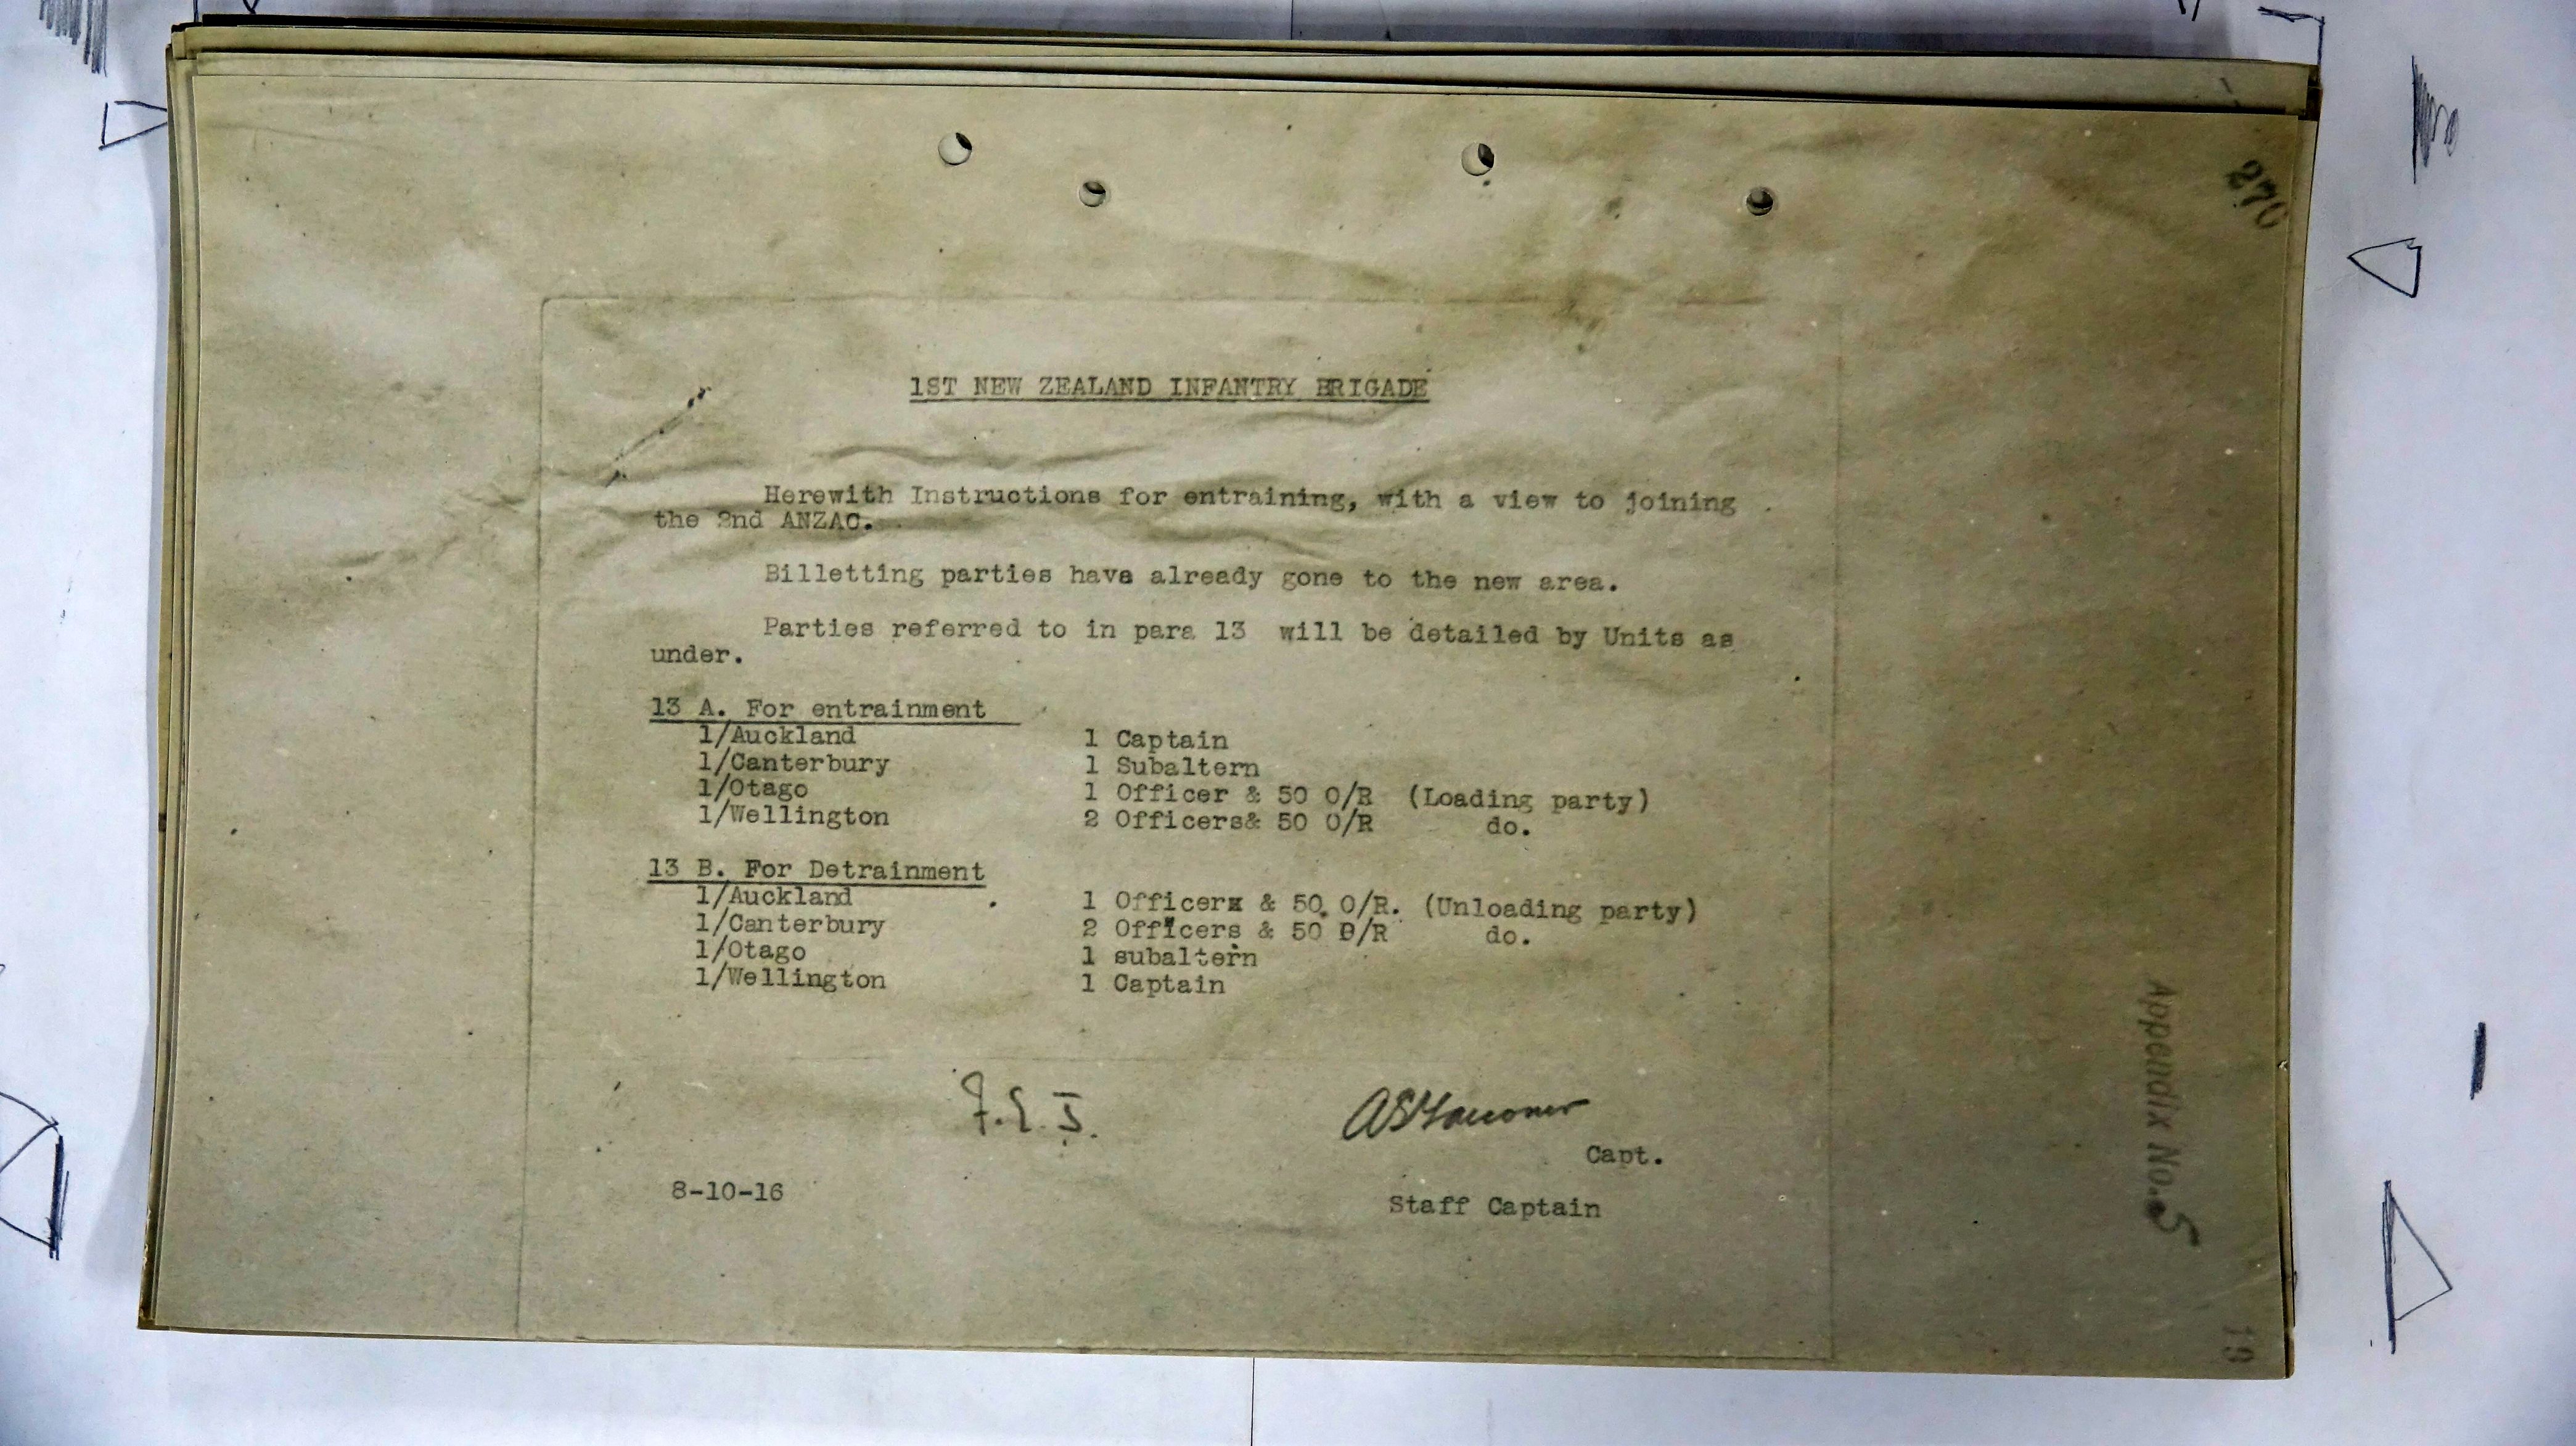 270
1ST NEW ZEALAND INFANTRY BRIGADE
Herewith Instructions for entraining, with a view to joining
the 2nd ANZAC.
Billetting parties have already gone to the new area.
Parties referred to in para 13 will be detailed by Units as
under.
13 A. For entrainment
1/Auckland 1 Captain
1/Canterbury 1 Subaltern
1/Otago 1 Officer & 50 O/R (Loading party)
1/Wellington 2 Officers& 50 O/R do.
13 B. For Detrainment
1/Auckland 1 Officerx & 50 O/R. (Unloading party)
1/Canterbury 2 Officers & 50 O/R do.
1/Otago 1 subaltern
1/Wellington 1 Captain
Capt.
8-10-16
Staff Captain
Appendix No. 5
19